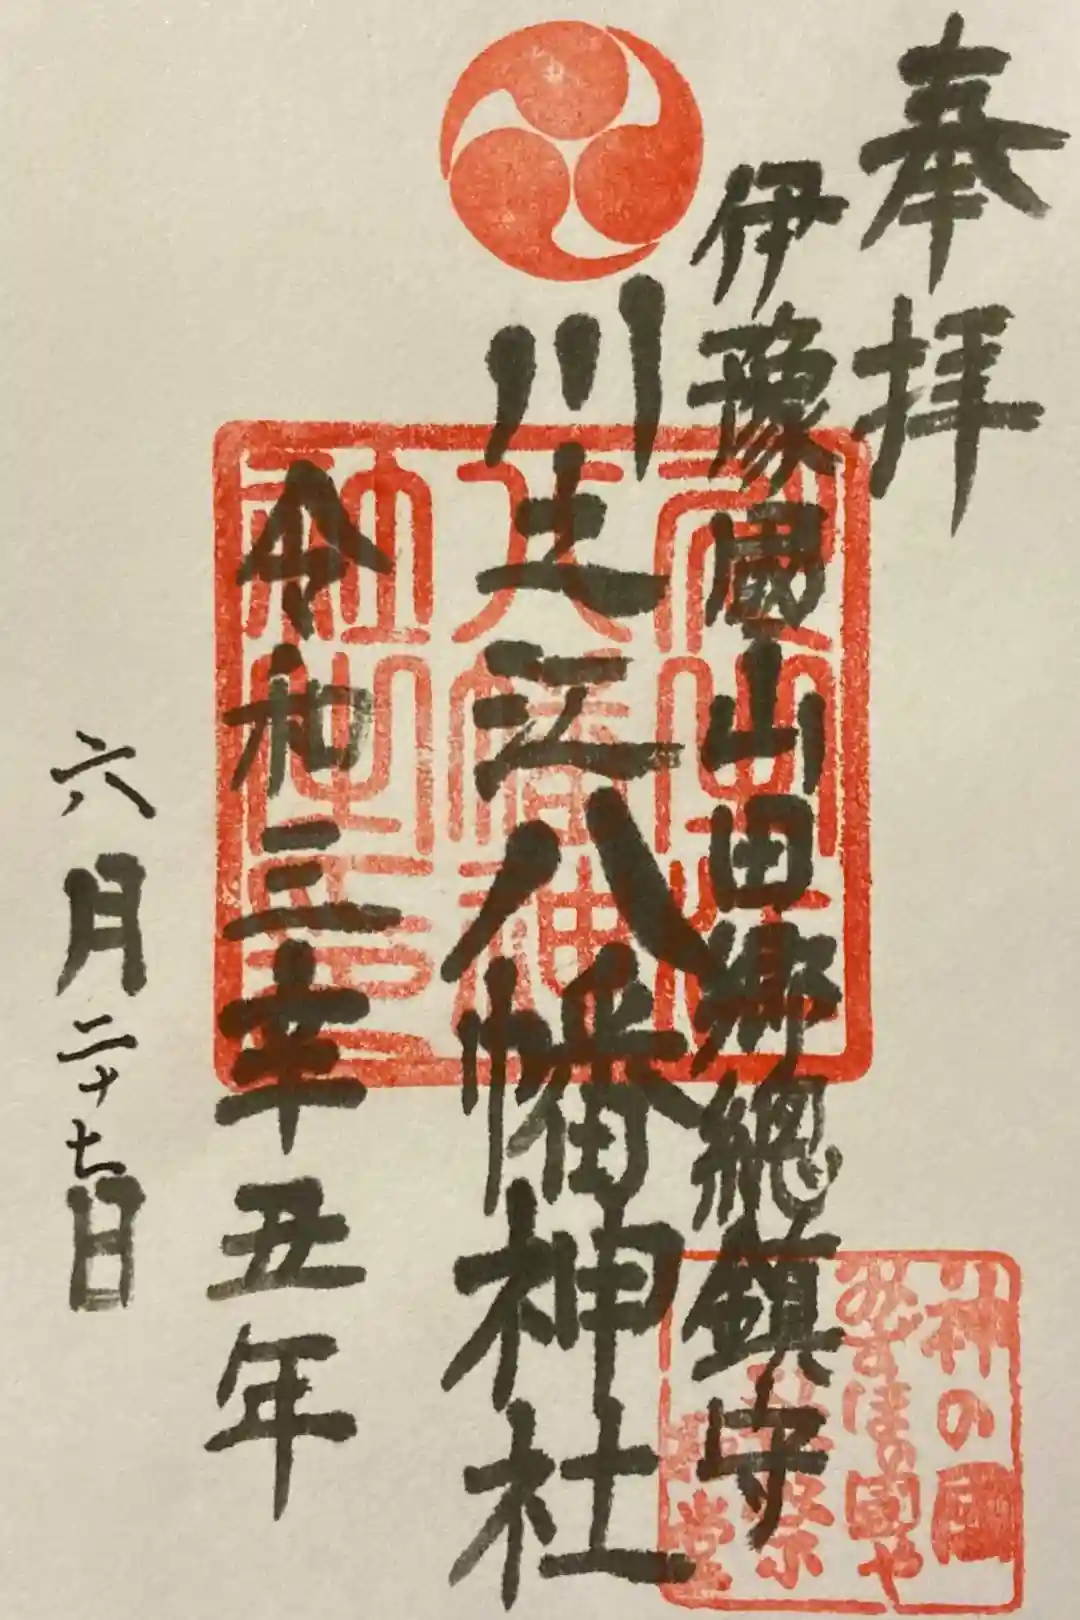 奉拝
伊豫國山田郷総鎮守
川之江八幡神社
令和三年辛丑年
六月二十七日
神の國
みずほの國や
祭
堂